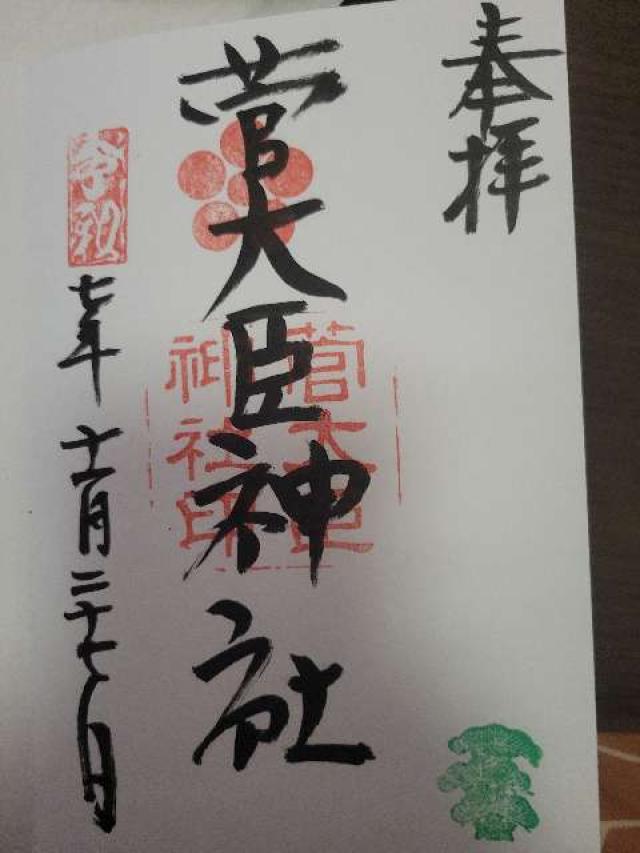 奉拝
菅大臣神社
菅大臣
神社印
令和
七年十一月二十七日